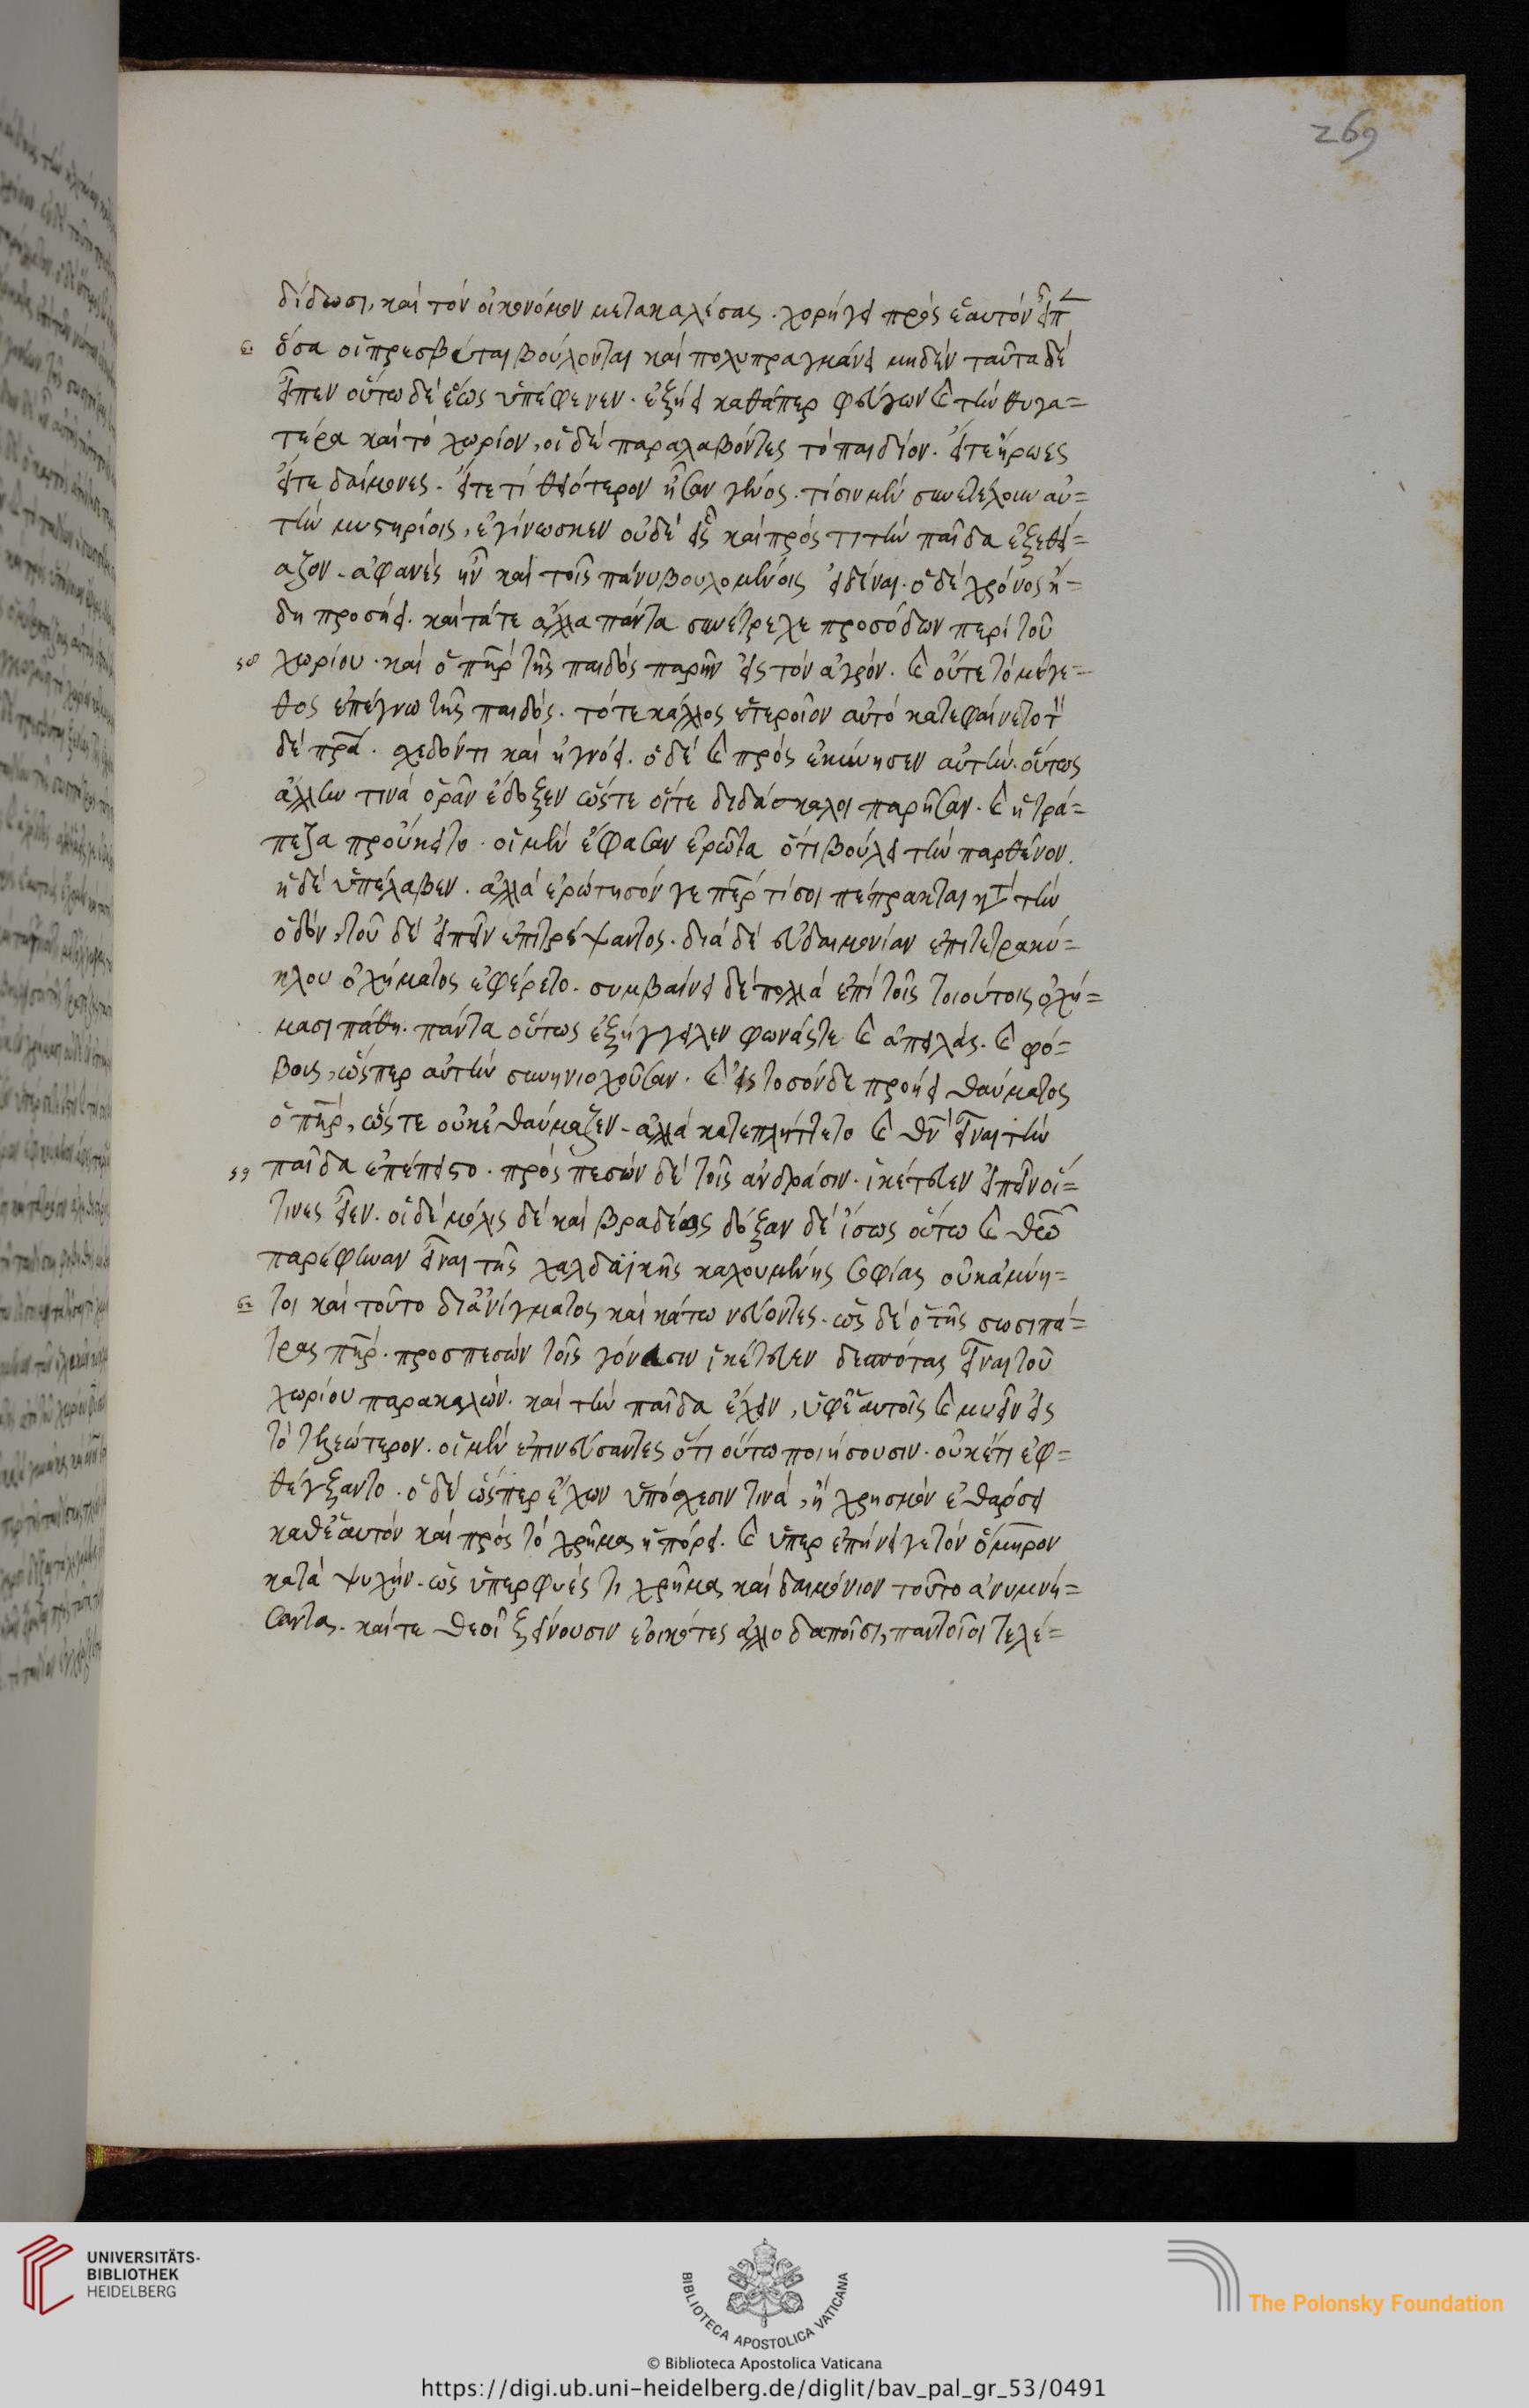 269
δίδωσι, καὶ τὸν οἰκονόμον μετακαλέσας. χορήγει πρὸς ἑαυτὸν εἶπ
ὅσα οἱ πρεσβύται βούλονται καὶ πολυπραγμόνει μηδὲν ταῦτα δὲ
εἶπεν οὕτω δὲ ἕως ὑπέφενεν. ἐξήει καθάπερ φεύγων καὶ τὴν θυγα=
τέρα καὶ τὸ χωρίον, οἱ δὲ παραλαβόντες τὸ παιδίον. εἴτε ἥρωες
εἴτε δαίμονες. εἴτε τι θειότερον ἦσαν γένος. τίσιν μὲν συνετέχουν αὐ=
τὴν μυστηρίοις, ἐγίνωσκεν οὐδὲ εἷς καὶ πρὸς τι τὴν παῖδα ἐξεθεί=
αζον. ἀφανὲς ἦν καὶ τοῖς πάνυ βουλομένοις εἰδέναι. ὁ δὲ χρόνος ἤ=
δη προσήει. καὶ τά τε ἄλλα πάντα συνέτρεχε προσόδων περὶ τοῦ
58 χωρίου. καὶ ὁ πηρ τῆς παιδὸς παρῆν εἰς τὸν ἀγρόν. καὶ οὔτε τὸ μέγε=
θος ἐπέγνω τῆς παιδός. τό τε κάλλος ἑτεροῖον αὐτὸ κατεφαίνετο τ
δὲ πρα. σχεδόν τι καὶ ἠγνόει. ὁ δὲ καὶ πρὸς ἐκίνησεν αὐτὴν. οὕτως
ἄλλην τινὰ ὁρᾶν ἔδοξεν ὥστε οἵτε διδάσκαλοι παρῆσαν. καὶ ἡ τρά=
πεζα προὔκειτο. οἱ μὲν ἔφασαν ἐρῶτα ὅτι βούλει τὴν παρθένον.
ἡ δὲ ὑπέλαβεν. ἀλλὰ ἐρώτησόν γε περ τί σοι πέπρακται κατὰ τὴν
ὁδόν, τοῦ δὲ εἰπεῖν ἐπιτρέψαντος. διὰ δὲ εὐδαιμονίαν ἐπὶ τετρακύ=
κλου ὀχήματος ἐφέρετο. συμβαίνει δὲ πολλὰ ἐπὶ τοῖς τοιούτοις ὀχή=
μασι πάθη. πάντα οὕτως ἐξήγγειλεν φωνάς τε καὶ ἀπειλάς. καὶ φό=
βους, ὥσπερ αὐτὴν συνηνιοχοῦσαν. καὶ εἰς τοσόνδε προήει θαύματος
ὁ πηρ, ὥστε οὐκ ἐθαύμαζεν. ἀλλὰ κατεπλήττετο καὶ θν εἶναι τὴν
59 παῖδα ἐπέπειστο. πρὸς πεσὼν δὲ τοῖς ἀνδράσιν. ἱκέτευεν εἰπεῖν οἵ=
τινες εἶεν. οἱ δὲ μόλις δὲ καὶ βραδέως δόξαν δὲ ἴσως οὕτω καὶ θεῶ
παρέφηναν εἶναι τῆς χαλδαϊκῆς καλουμένης σοφίας οὐκ ἀμύη=
τοι καὶ τοῦτο δι αἰνίγματος καὶ κάτω νεύοντες. ὡς δὲ ὁ τῆς σωσιπά=
τρας πηρ. προσπεσὼν τοῖς γόνασιν ἱκέτευεν δεσπότας εἶναι τοῦ
χωρίου παρακαλῶν. καὶ τὴν παῖδα ἔχειν, ὑφ ἑαυτοῖς καὶ μυεῖν εἰς
τὸ τελεώτερον. οἱ μὲν ἐπινεύσαντες ὅτι οὕτω ποιήσουσιν. οὐκέτι ἐφ=
θέγξαντο. ὁ δὲ ὥσπερ ἔχων ὑπόσχεσιν τινὰ, ἢ χρησμὸν ἐθάρσει
καθ ἑαυτὸν καὶ πρὸς τὸ χρῆμα ἠπόρει. καὶ ὑπερ ἐπήνει γε τὸν ὅμηρον
κατὰ ψυχήν. ὡς ὑπερφυές τι χρῆμα καὶ δαιμόνιον τοῦτο ἀνυμνή=
σαντα. καί τε θεοὶ ξείνουσιν ἐοικότες ἀλλο δαποῖσι, παντοῖοι τελέ=
UNIVERSITÄTS-
BIBLIOTHEK
HEIDELBERG
BIBLIOTECA APOSTOLICA VATICANA
The Polonsky Foundation
© Biblioteca Apostolica Vaticana
https://digi.ub.uni-heidelberg.de/diglit/bav_pal_gr_53/0491